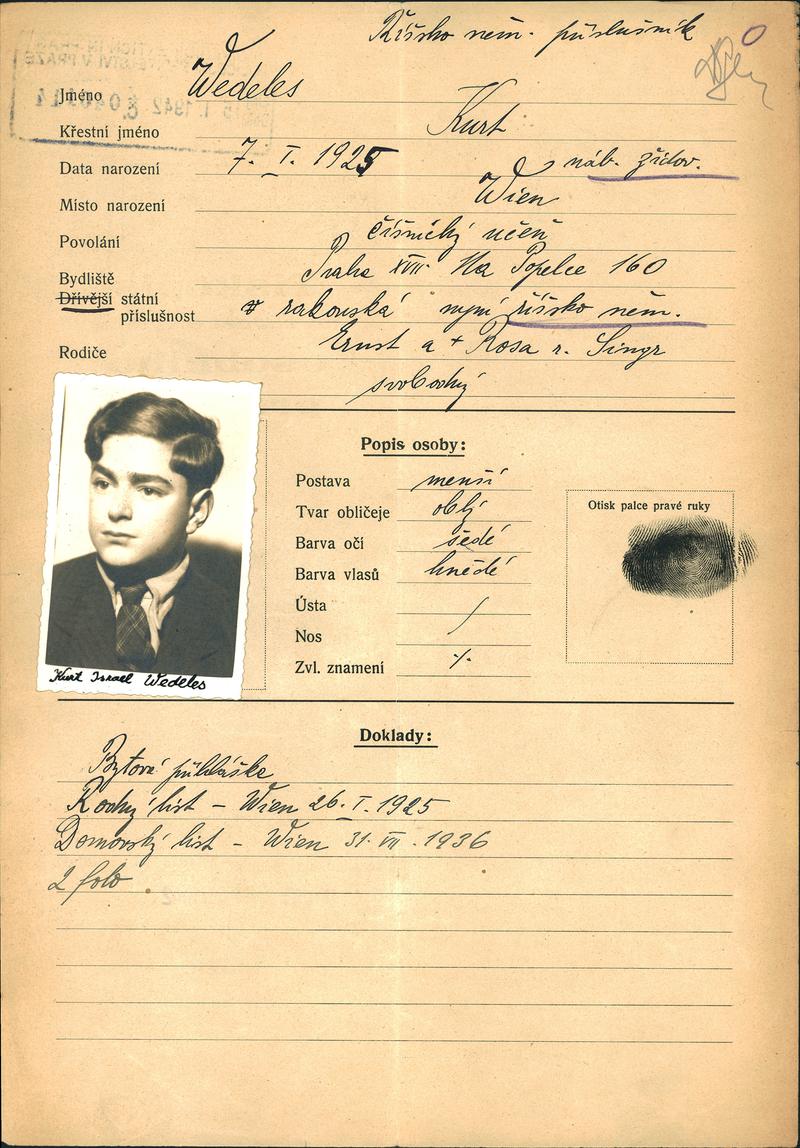 Říšsko něm. příslušník
Jméno Wedeles
Křestní jméno Kurt
Data narození 7. I. 1925 náb. židov.
Místo narození Wien
Povolání číšnický učeň
Bydliště Praha XVII. Na Popelce 160
Dřívější státní příslušnost rakouská nyní říšsko něm.
Rodiče Ernst a + Rosa r. Singr
svobodný
Popis osoby:
Postava menší
Tvar obličeje oblý
Barva očí šedé
Barva vlasů hnědé
Ústa /
Nos
Zvl. znamení ·/.
Otisk palce pravé ruky
Kurt Israel Wedeles
Doklady:
Bytové přihlášky
Rodný list – Wien 26. I. 1925
Domovský list – Wien 31. VII. 1936
2 foto